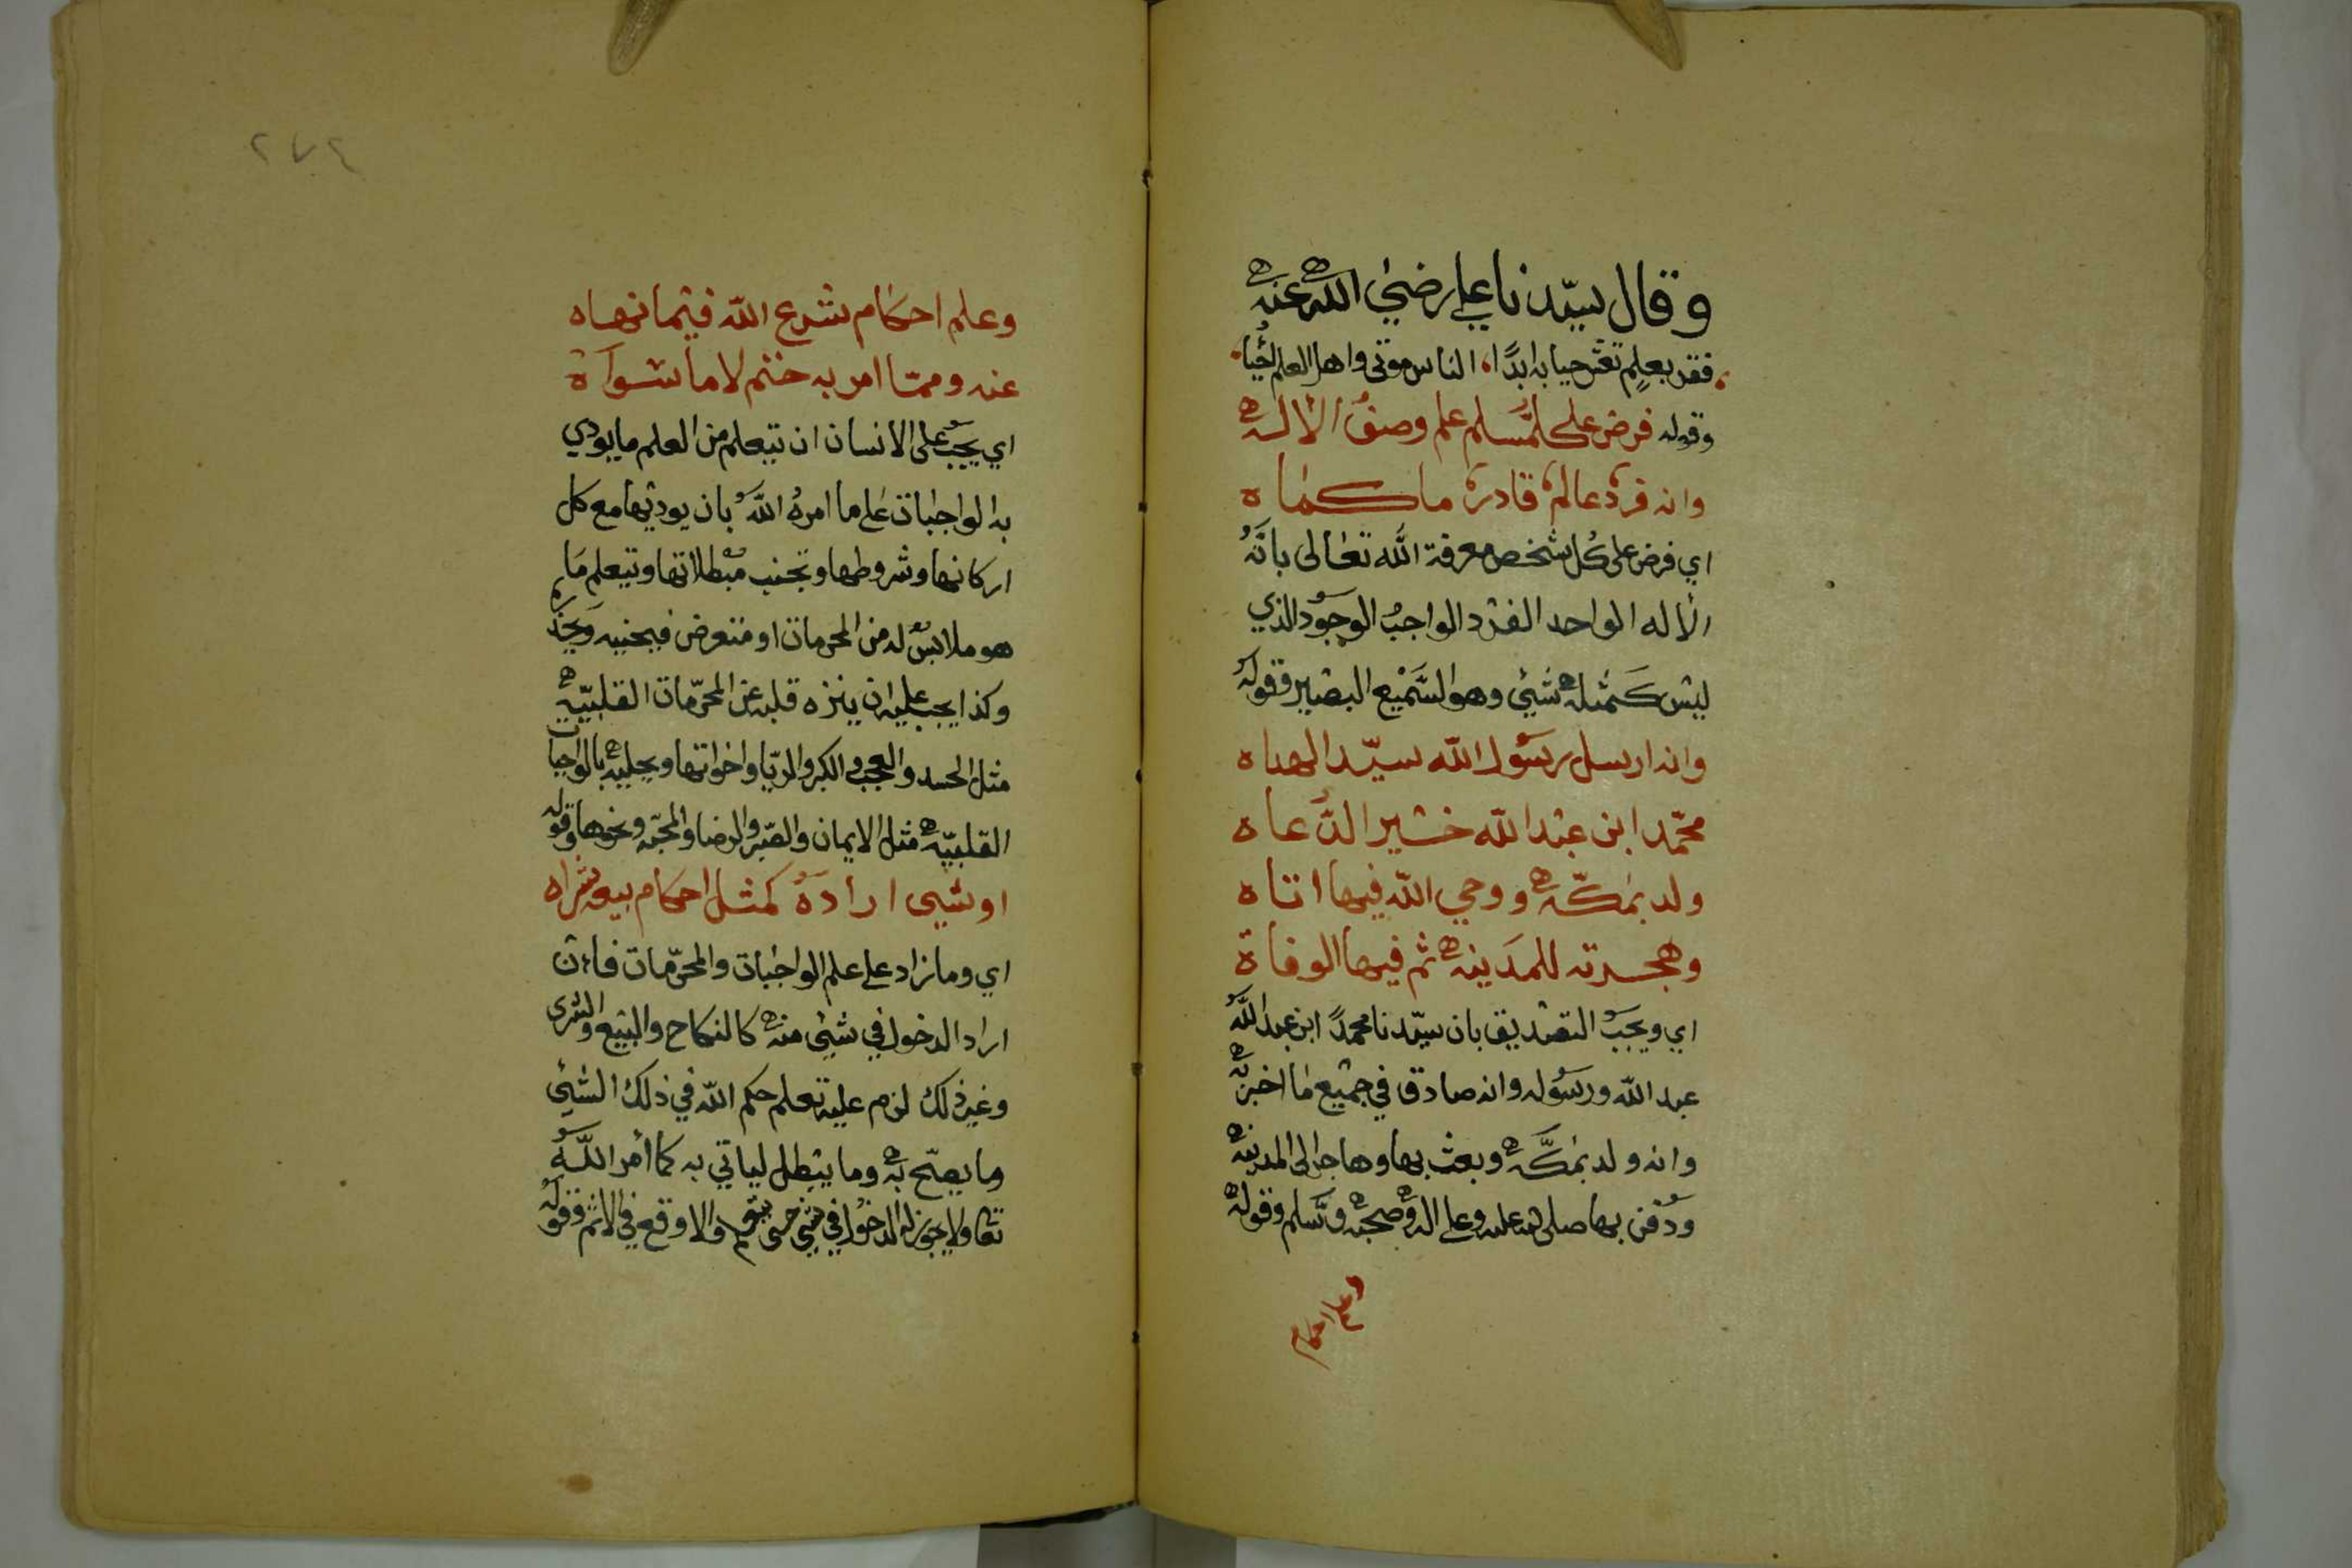 وقال سيّدنا علي رضي الله عنه
ففز بعلم تعش حيا به ابدًا، الناس موتى واهل العلم أحيا
وقوله فرض على كل مسلم علم وصف الاله
وانه فرد عالم قادر ما كماه
اي فرض على كل شخص معرفة الله تعالى بانه
الاله الواحد الفرد الواجب الوجود الذي
ليس كمثله شيئ وهو السميع البصير وقوله
وانه ارسل رسول الله سيّد الهداه
محمّد ابن عبدالله خير الدعاه
ولد بمكّه ووحي الله فيها اتاه
وهجرته للمدينه ثم فيها الوفاة
اي ويجب التصديق بان سيّدنا محمدً ابن عبدالله
عبدالله ورسوله وانه صادق في جميع ما اخبر به
وانه ولد بمكّه وبعث بها وهاجر الى المدينه
ودفن بها صلى الله عليه وعلى اله وصحبه وسلم وقوله
وعلم احكام
٢٧٤
وعلم احكام شرع الله فيما نهاه
عنه ومما امر به حتم لا ما سواه
اي يجب على الانسان ان يتعلم من العلم ما يودي
به الواجبات على ما امره الله بان يوديها مع كل
اركانها وشروطها وتجنب مبطلاتها ويتعلم ما
هو ملابس له من المحرمات او متعرض فيجنبه ويحذره
وكذا يجب عليه ان ينزه قلبه عن المحرّمات القلبيّه
مثل الحسد والعجب والكبر والريا واخواتها ويحليه بالواجبات
القلبيّه مثل الايمان والصبر والرضا والمحبّه ونحوها وقوله
او شيى اراده كمثل احكام بيع شراه
اي وما زاد على علم الواجبات والمحرّمات فاءن
اراد الدخول في شيئ منه كالنكاح والبيع والشرى
وغير ذلك لزم عليه تعلم حكم الله في ذلك الشيئ
وما يصح به وما يبطل لياتي به كما أمر الله
تعا ولا يجوز له الدخول في شي حتى والا وقع في الاثم وقوله